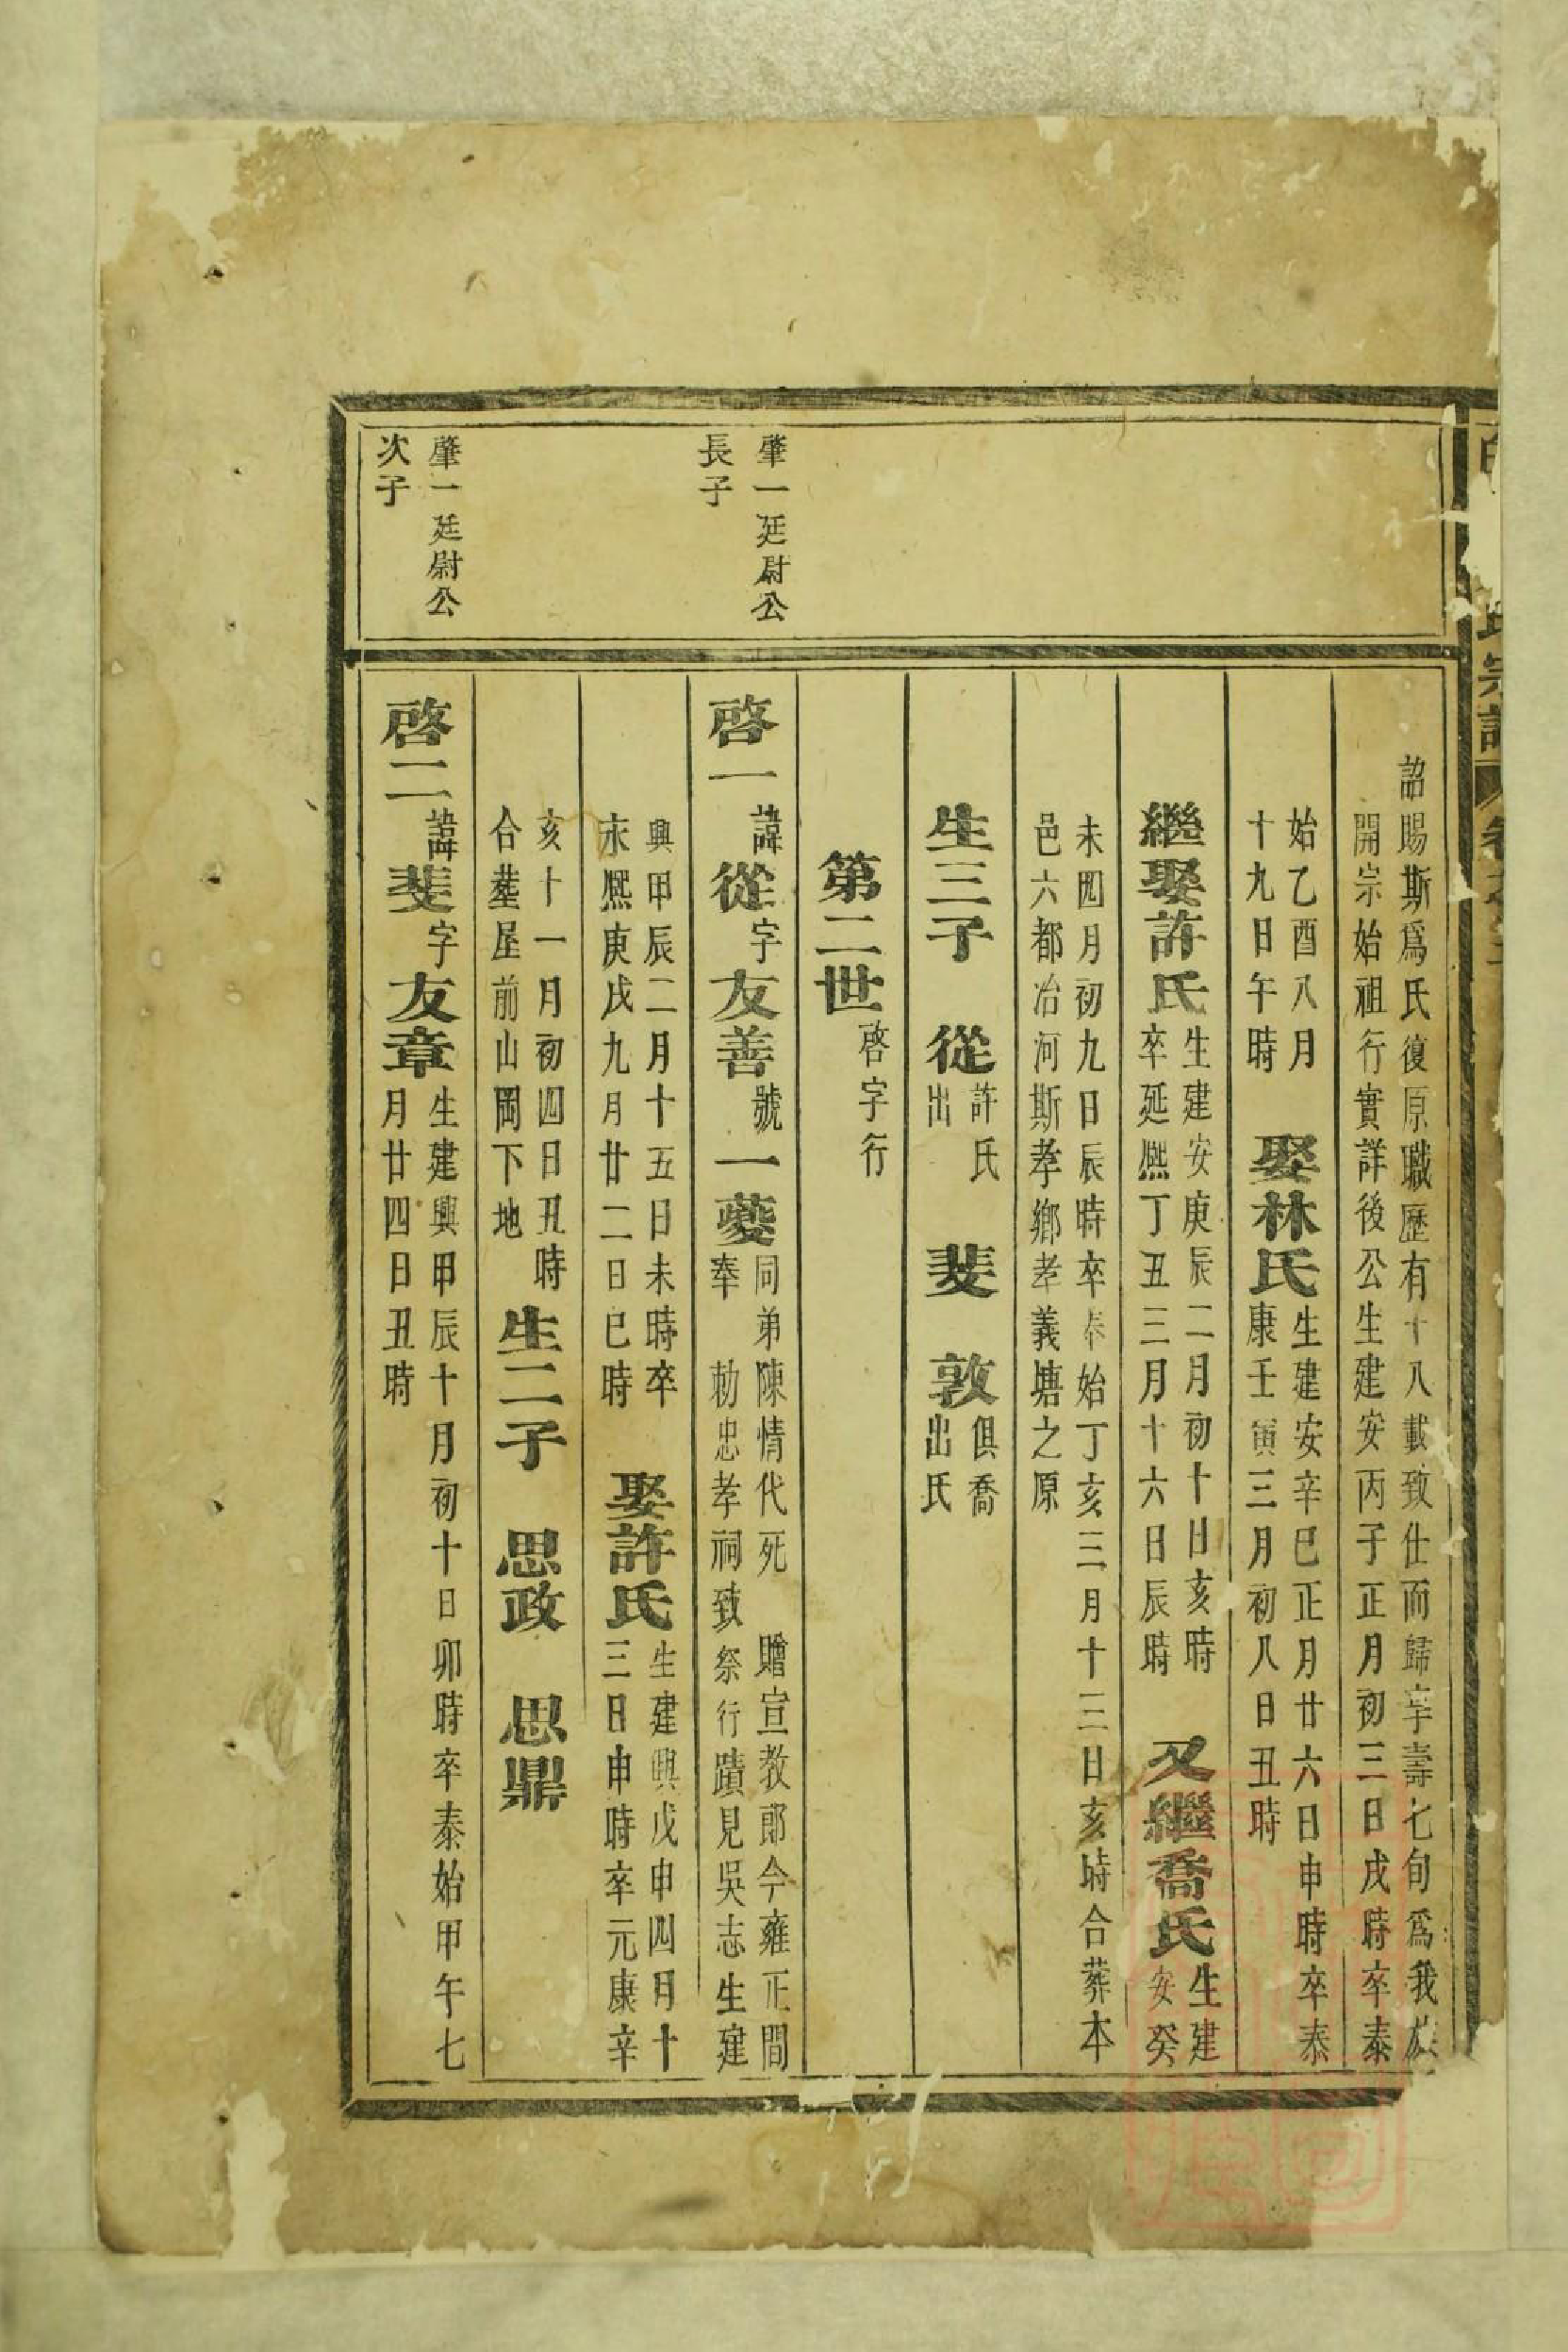 詔賜斯爲氏復原職歷有十八載致仕而歸享壽七旬爲我族
開宗始祖行實詳後公生建安丙子正月初三日戌時卒泰
始乙酉八月
十九日午時
娶林氏
生建安辛巳正月廿六日申時卒泰
康壬寅三月初八日丑時
繼娶許氏
生建安庚辰二月初十日亥時
卒延熈丁丑三月十六日辰時
又繼喬氏
生建
安癸
未四月初九日辰時卒泰始丁亥三月十三日亥時合葬本
邑六都冶河斯孝鄉孝義塘之原
生三子
從
許氏
出
斐
敦
俱喬
氏出
第二世
啓字行
肇一廷尉公
長子
啓一
諱從字友善號一夔
同弟陳情代死 贈宣教郎今雍正間
奉 勅忠孝祠致祭行蹟見吳志生建
興甲辰二月十五日未時卒
永熈庚戌九月廿二日巳時
娶許氏
生建興戊申四月十
三日申時卒元康辛
亥十一月初四日丑時
合塟屋前山岡下地
生二子
思政
思鼎
肇一廷尉公
次子
啓二
諱斐字友章
生建興甲辰十月初十日卯時卒泰始甲午七
月廿四日丑時